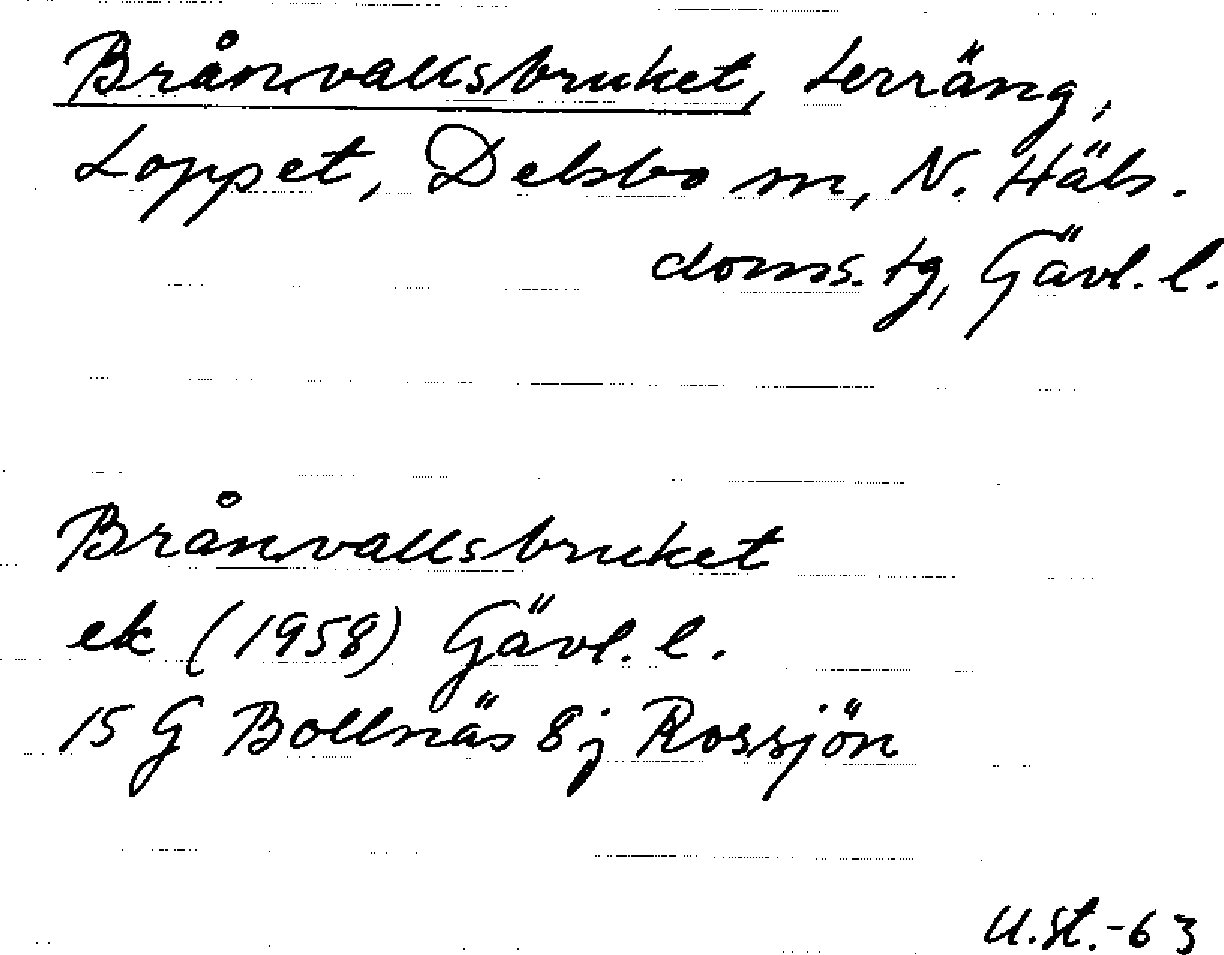 Brånvallsbruket, terräng,
Loppet, Delsbo sn, N. Häls.
doms. tg, Gävl. l.
Brånvallsbruket
ek (1958) Gävl. l.
15 G Bollnäs 8 j Rossjön
U.St.-63